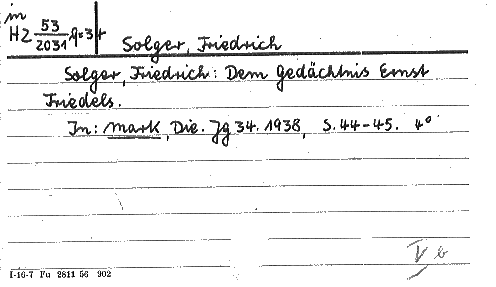 m
HZ 53/2031,q=34
Solger, Friedrich
Solger, Friedrich: Dem Gedächtnis Ernst
Friedels.
In: Mark, Die. Jg 34. 1938, S. 44-45. 4°
V b
I-16-7 Fu 2811 56 902